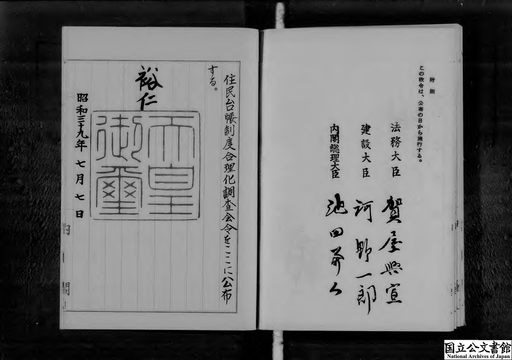 附則
この政令は、公布の日から施行する。
法務大臣 賀屋興宣
建設大臣 河野一郎
内閣総理大臣 池田勇人
住民台帳制度合理化調査会令をここに公布
する。
裕仁
天皇
御璽
昭和三十九年七月七日
内閣
国立公文書館
National Archives of Japan